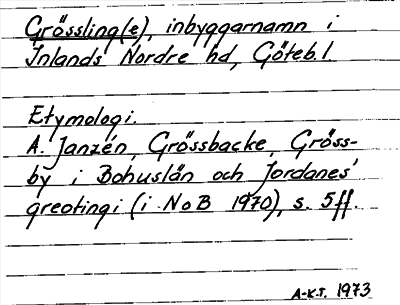 Grössling(e), inbyggarnamn i
Inlands Nordre hd, Göteb.l
Etymologi.
A. Janzén, Grössbacke, Gröss-
by i Bohuslän och Jordanes'
greotingi (i NoB 1970), s. 5ff.
A-K.T. 1973